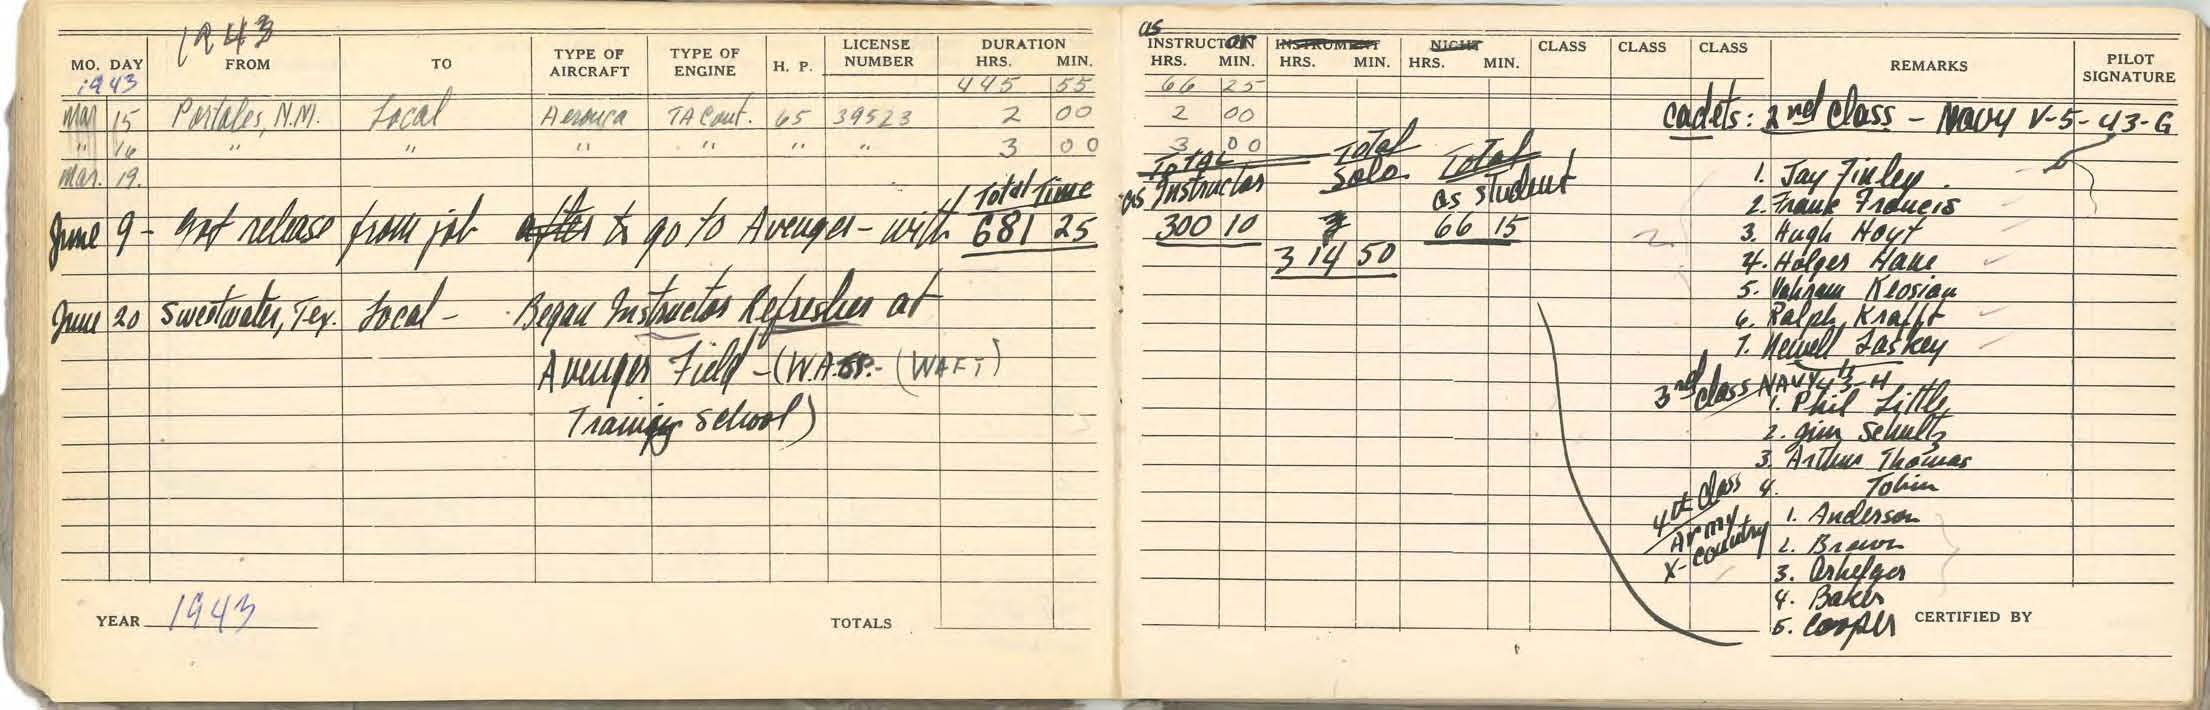 1943
MO. DAY FROM TO TYPE OF AIRCRAFT TYPE OF ENGINE H. P. LICENSE NUMBER DURATION HRS. MIN.
1943 445 55
Mar 15 Portales, N.M. Local Aeronca TA Cont. 65 39523 2 00
" 16 " " " " " " 3 00
Mar. 19.
Total Time
June 9 - Got release from job after to go to Avenger - with 681 25
June 20 Sweetwater, Tex. Local - Began Instructor Refresher at
Avenger Field - (W.A. (WAFT)
Training School)
YEAR 1943 TOTALS
as
INSTRUCTOR HRS. MIN. INSTRUMENT HRS. MIN. NIGHT HRS. MIN. CLASS CLASS CLASS REMARKS PILOT SIGNATURE
66 25
2 00
3 00
Total as Instructor Total Solo Total as student
300 10 66 15
314 50
Cadets: 2nd Class - Navy V-5-43-G
1. Jay Finley
2. Frank Francis
3. Hugh Hoyt
4. Holger Hane
5. Vahram Keosian
6. Ralph Krafft
7. Newell Laskey
3rd Class NAVY 43-H
1. Phil Little
2. Jim Schultz
3. Arthur Thomas
4. Tobin
4th Class Army X-Country
1. Anderson
2. Brown
3.
4. Baker
5. Cooper
CERTIFIED BY